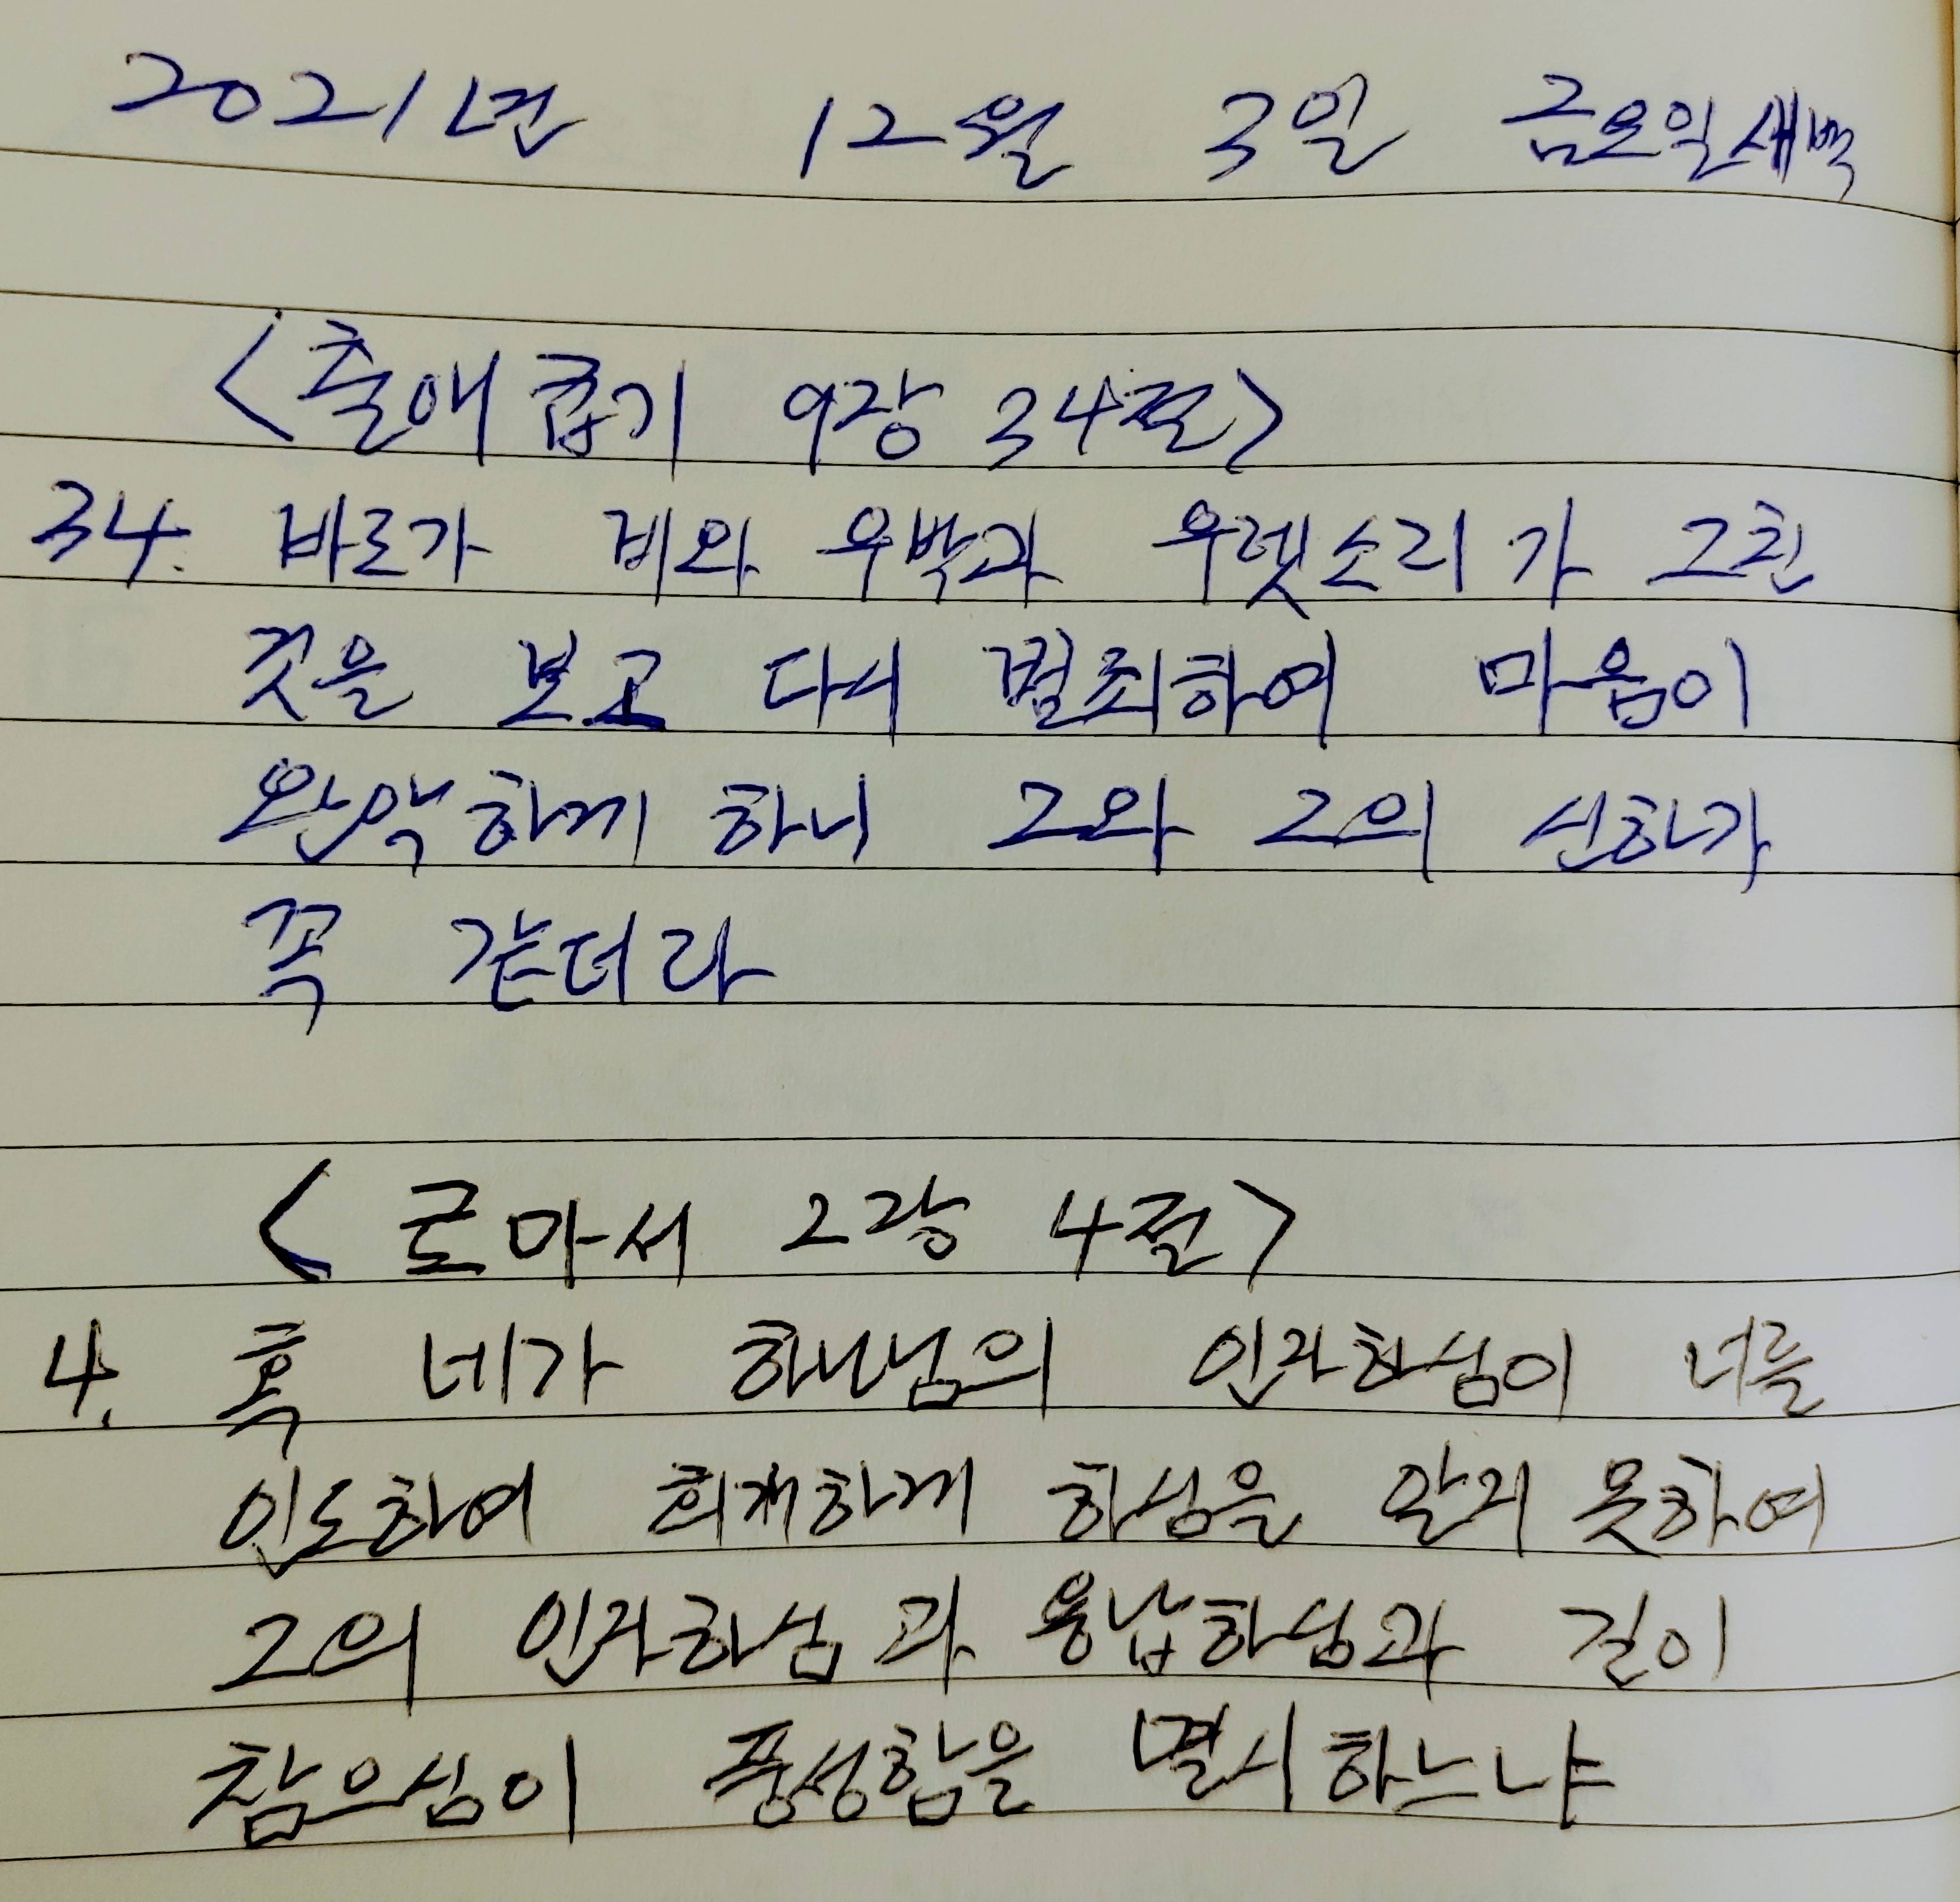 2021년 12월 3일 금요일새벽
<출애굽기 9장 34절>
34. 바로가 비와 우박과 우렛소리가 그친
것을 보고 다시 범죄하여 마음이
완악하게 하니 그와 그의 신하가
꼭 같더라
<로마서 2장 4절>
4. 혹 네가 하나님의 인자하심이 너를
인도하여 회개하게 하심을 알지 못하여
그의 인자하심과 용납하심과 길이
참으심이 풍성함을 멸시하느냐